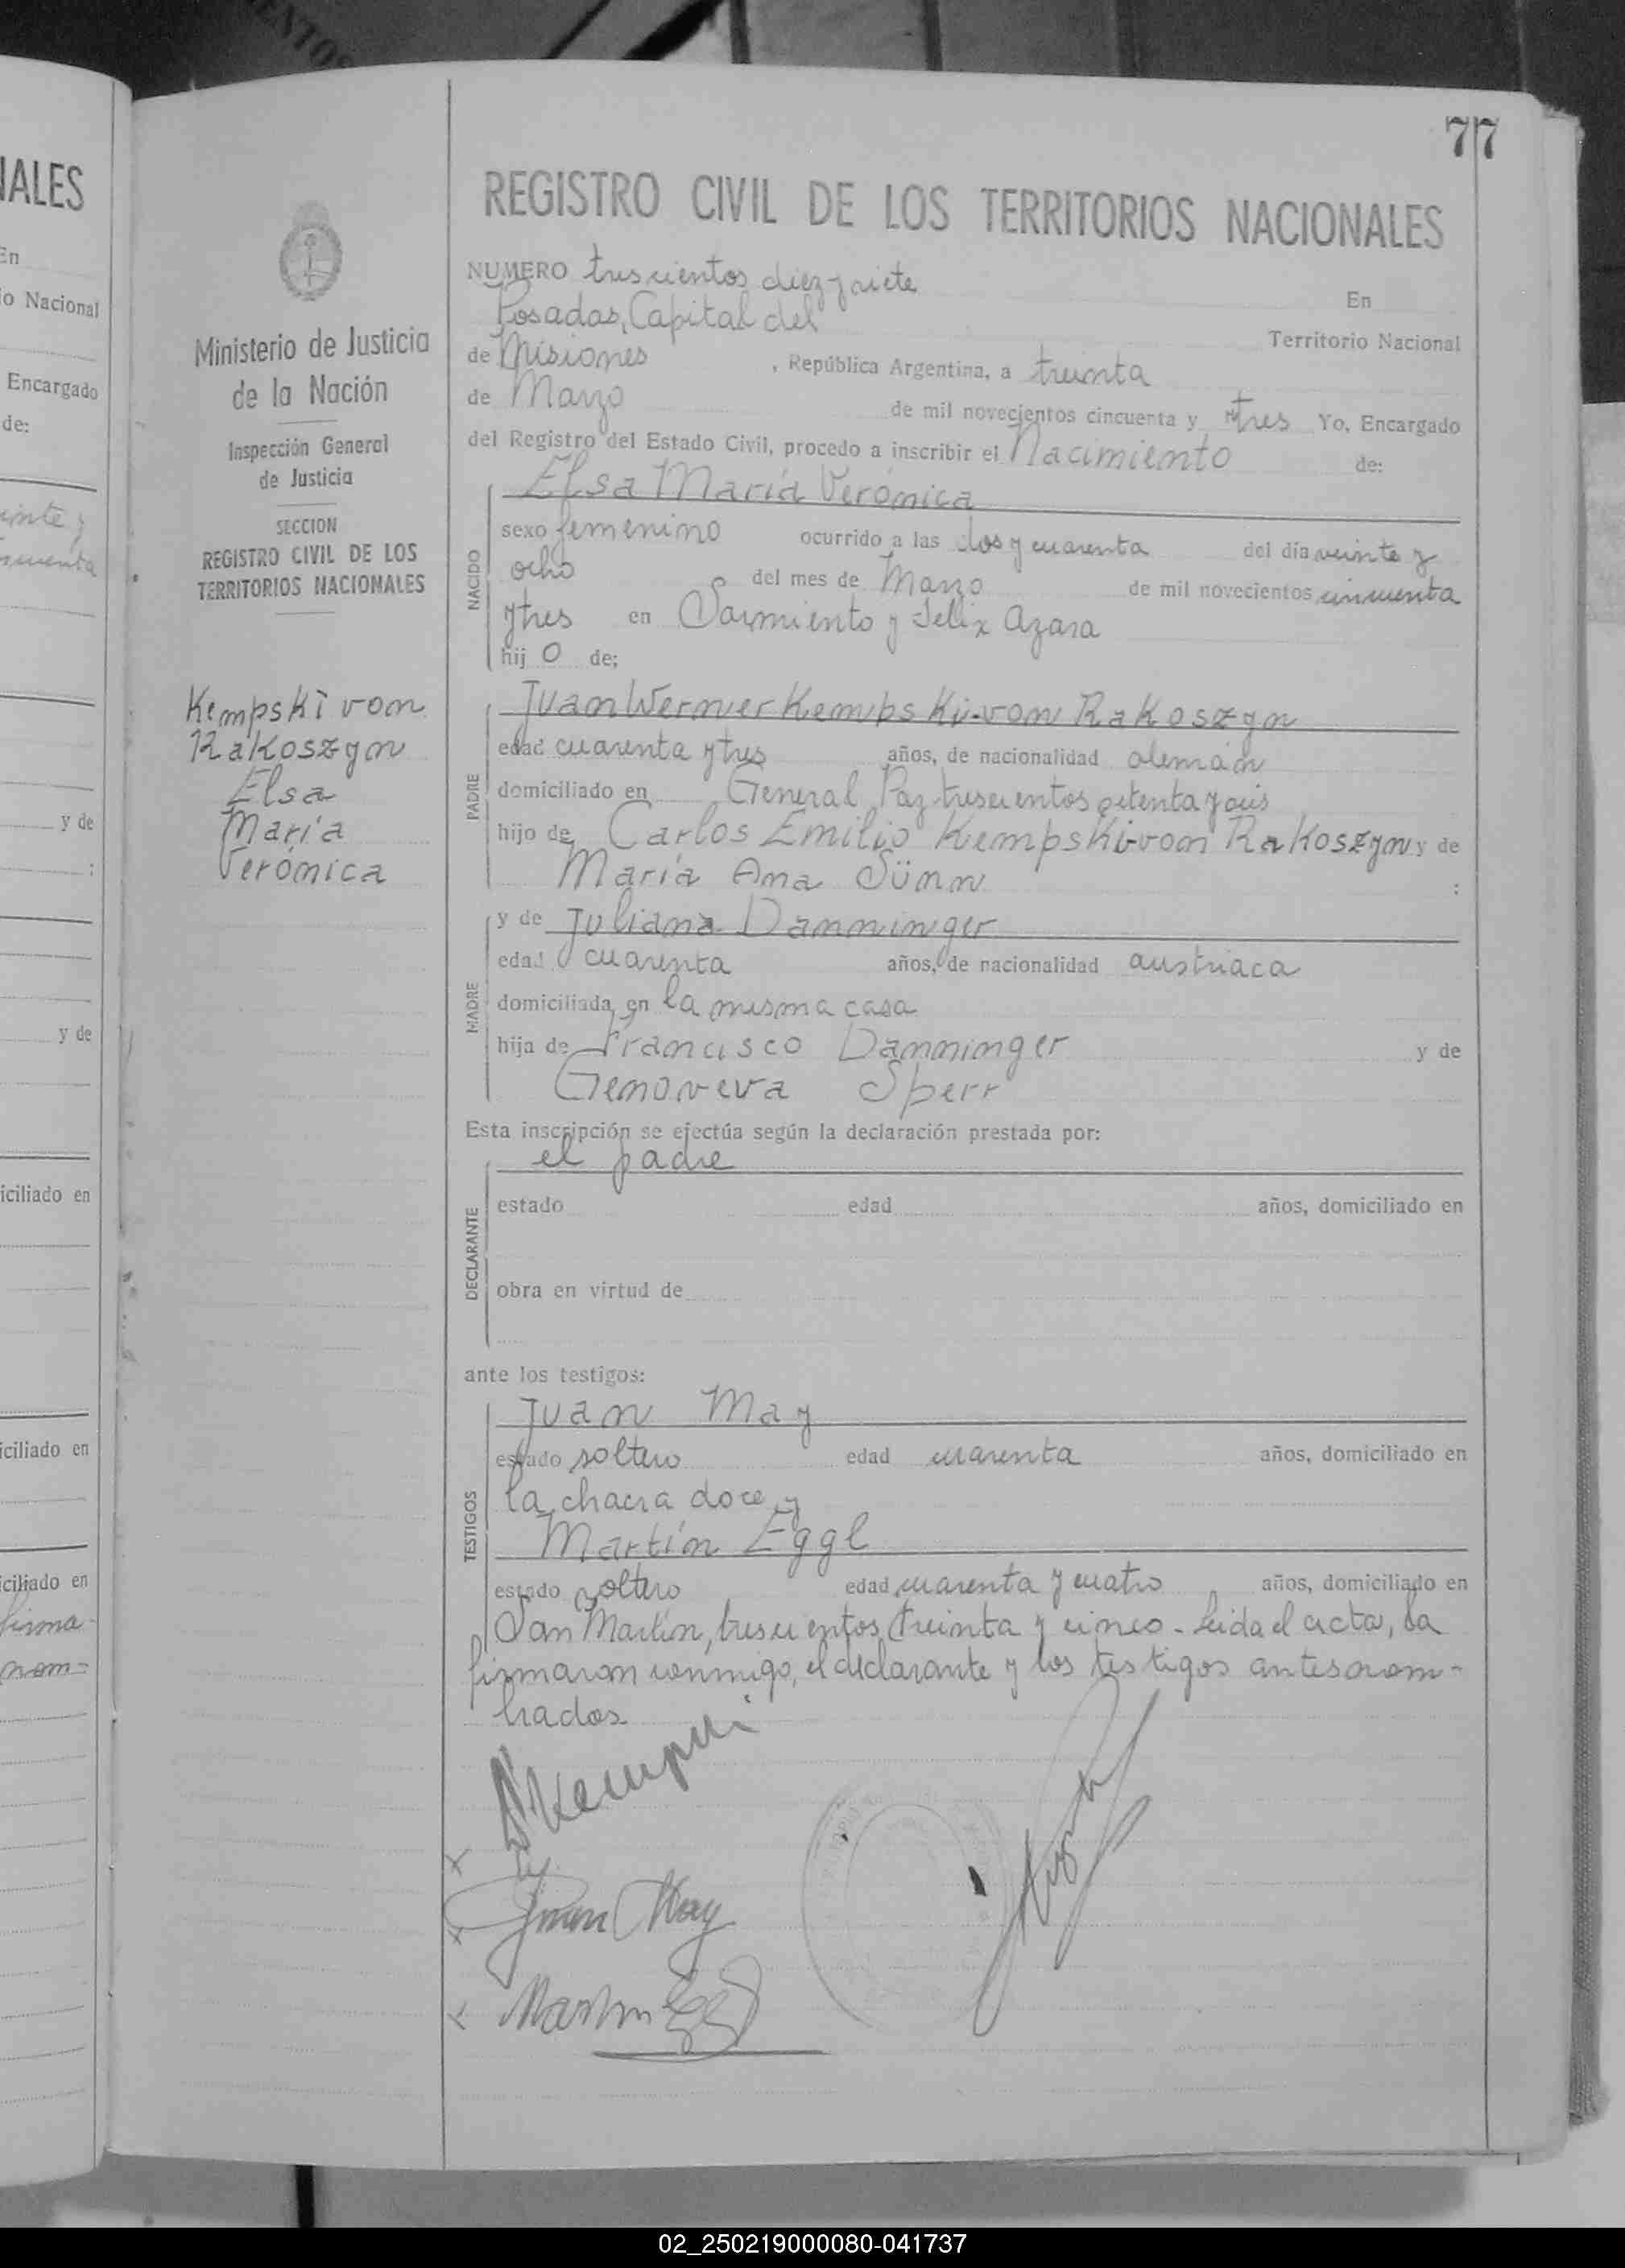 77
REGISTRO CIVIL DE LOS TERRITORIOS NACIONALES
NUMERO trescientos diez y siete En
Posadas, Capital del Territorio Nacional
de Misiones , República Argentina, a treinta
de Marzo de mil novecientos cincuenta y tres Yo, Encargado
del Registro del Estado Civil, procedo a inscribir el Nacimiento de:
NACIDO
Elsa María Verónica
sexo femenino ocurrido a las dos y cuarenta del día veinte y
ocho del mes de Marzo de mil novecientos cincuenta
y tres en Sarmiento y Felix Azara
hij o de;
PADRE
Juan Werner Kempski-von Rakoszyn
edad cuarenta y tres años, de nacionalidad alemán
domiciliado en General Paz trescientos setenta y seis
hijo de Carlos Emilio Kempski-von Rakoszyn y de
María Ana Sünn :
MADRE
y de Juliana Danninger
edad cuarenta años, de nacionalidad austriaca
domiciliada en la misma casa
hija de Francisco Danninger y de
Genoveva Sperr
Esta inscripción se efectúa según la declaración prestada por:
DECLARANTE
el padre
estado edad años, domiciliado en
obra en virtud de
ante los testigos:
TESTIGOS
Juan May
estado soltero edad cuarenta años, domiciliado en
la chacra doce y
Martín Eggl
estado soltero edad cuarenta y cuatro años, domiciliado en
San Martín, trescientos treinta y cinco - Leida el acta, la
firmaron conmigo, el declarante y los testigos antes nom-
brados
Kempski
Juan May
Martin Eggl
Ministerio de Justicia
de la Nación
Inspección General
de Justicia
SECCION
REGISTRO CIVIL DE LOS
TERRITORIOS NACIONALES
Kempski von
Rakoszyn
Elsa
María
Verónica
NALES
En
io Nacional
Encargado
de:
y de
:
y de
iciliado en
iciliado en
iciliado en
firma
nom=
02_250219000080-041737